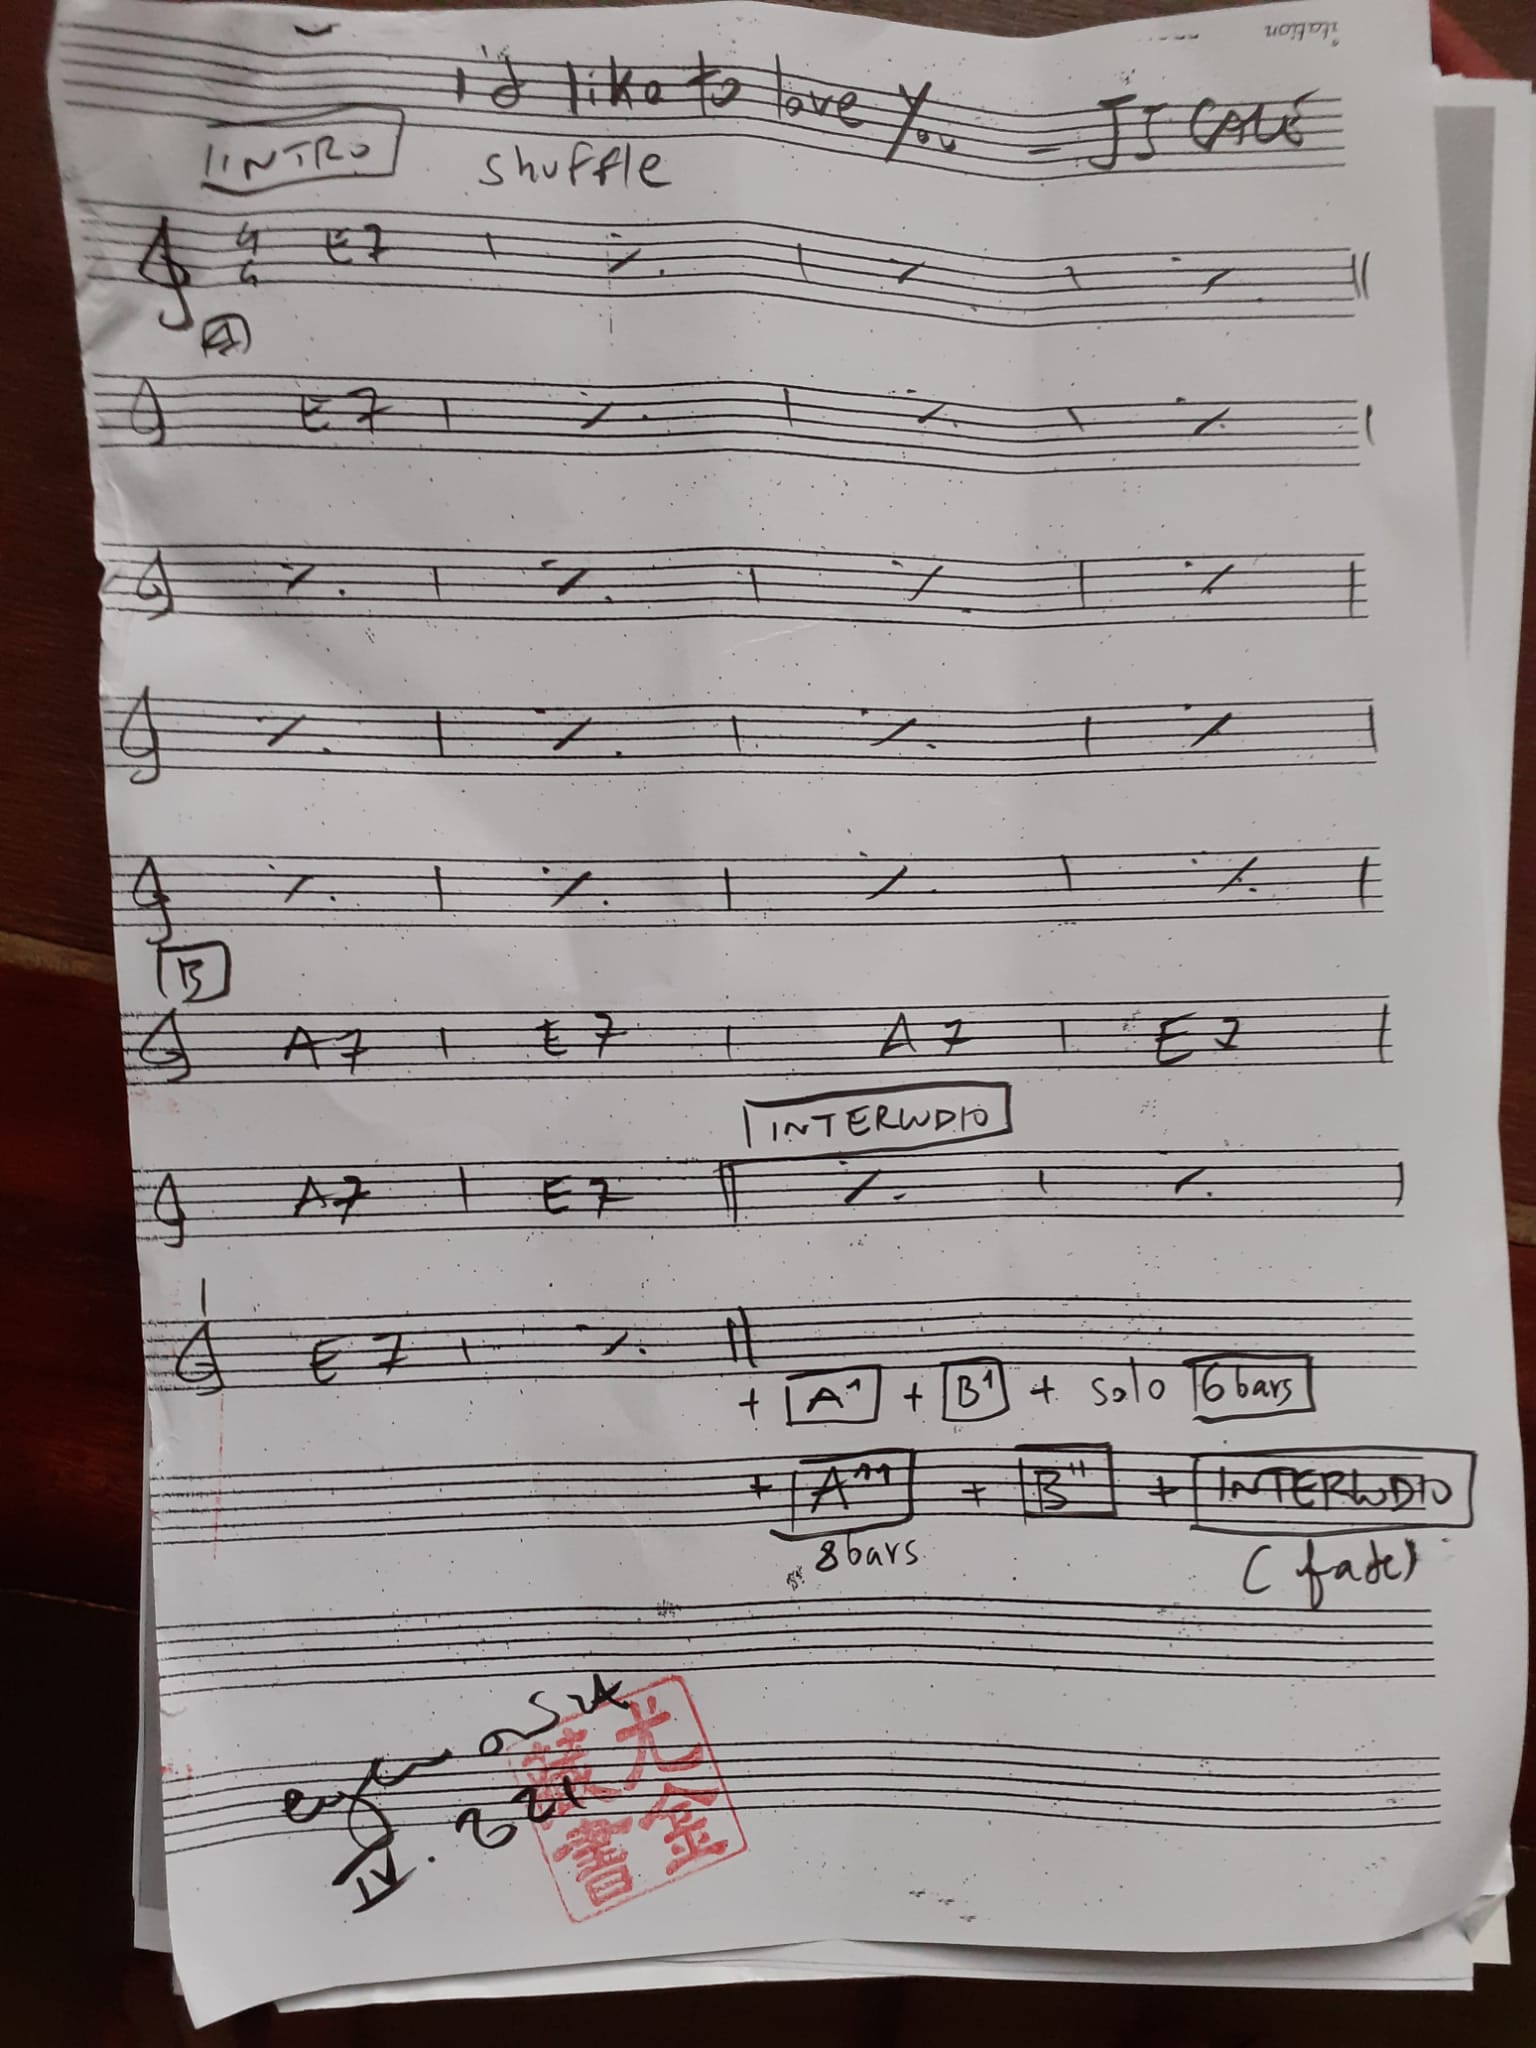 itation
i'd like to love you - JJ CALE
INTRO shuffle
4/4 E7 | ٪ | ٪ | ٪ ||
A
E7 | ٪ | ٪ | ٪ |
٪ | ٪ | ٪ | ٪ |
٪ | ٪ | ٪ | ٪ |
٪ | ٪ | ٪ | ٪ |
B
A7 | E7 | A7 | E7 |
INTERLUDIO
A7 | E7 || ٪ | ٪ |
E7 | ٪ ||
+ A' + B' + solo 6 bars
+ A'' + B'' + INTERLUDIO
8 bars (fade)
尤金
藏書